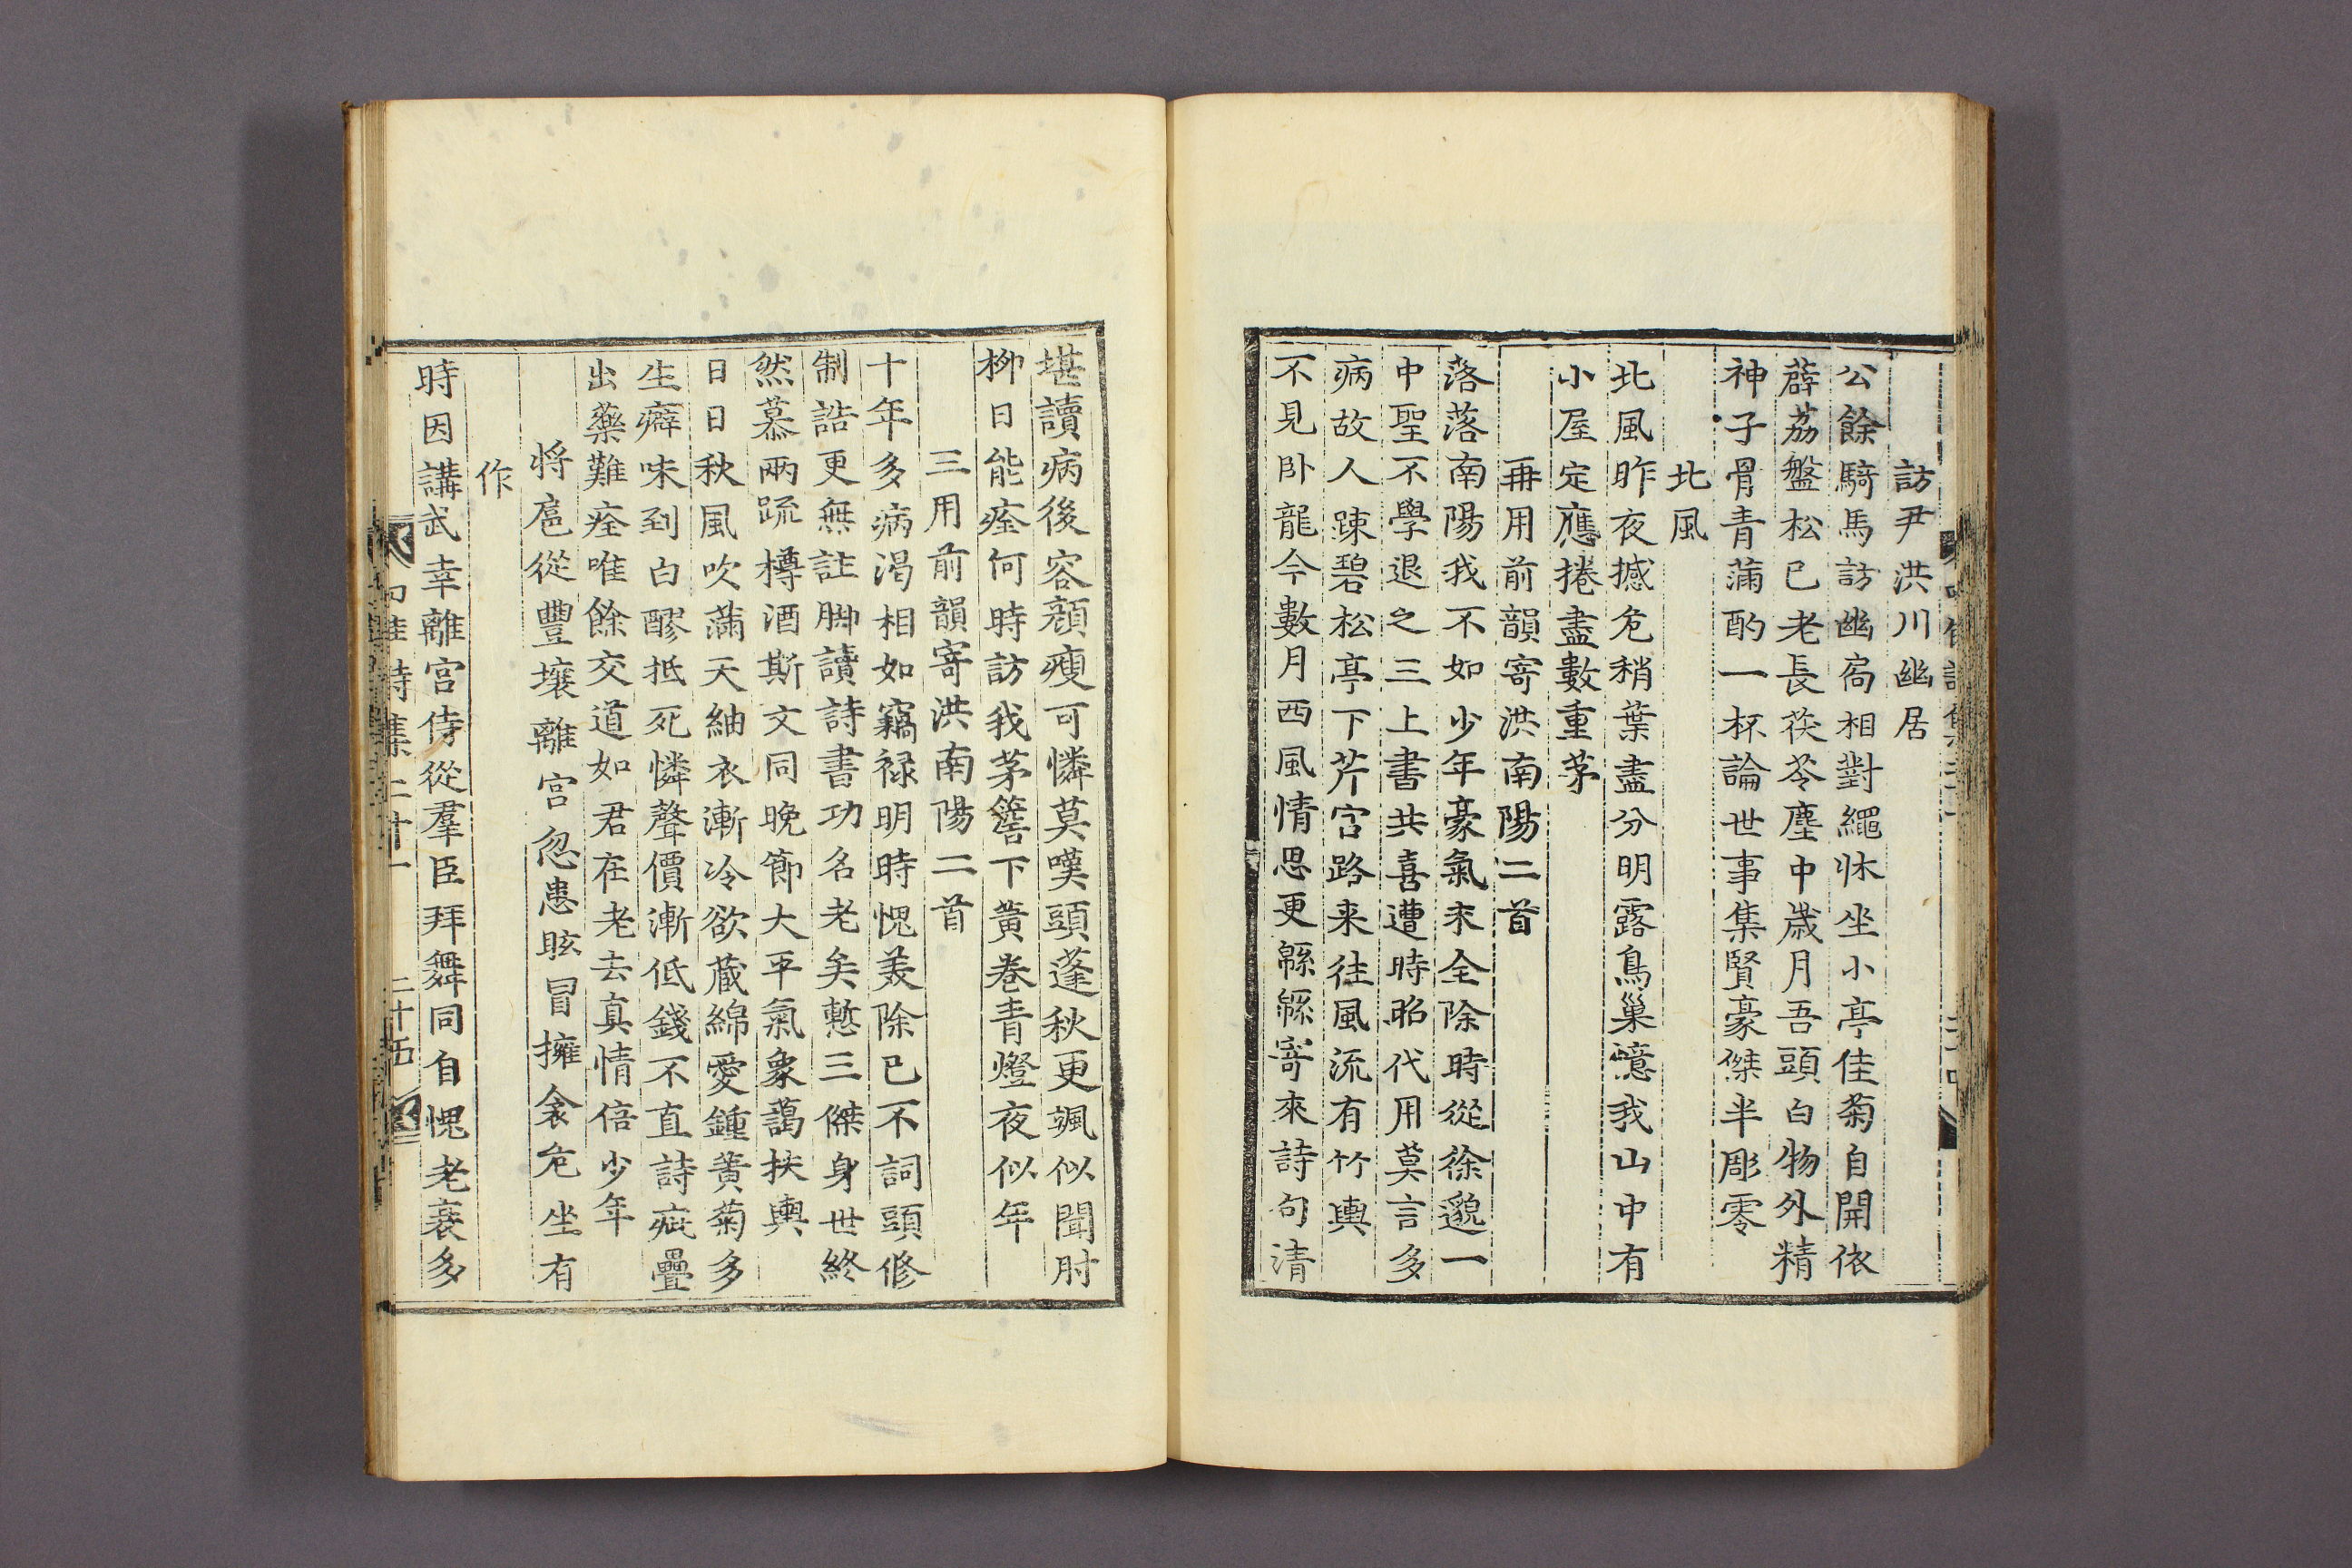 訪尹洪川幽居
公餘騎馬訪幽扃相對繩床坐小亭佳菊自開依
薜荔盤松已老長茯苓塵中歲月吾頭白物外精
神子骨青蒲酌一杯論世事集賢豪傑半彫零
北風
北風昨夜撼危稍葉盡分明露鳥巢憶我山中有
小屋定應捲盡數重茅
再用前韻寄洪南陽二首
落落南陽我不如少年豪氣未全除時從徐邈一
中聖不學退之三上書共喜遭時昭代用莫言多
病故人踈碧松亭下芹宮路来往風流有竹輿
不見卧龍今數月西風情思更緜緜寄來詩句清
堪讀病後容顔瘦可憐莫嘆頭蓬秋更颯似聞肘
柳日能痊何時訪我茅簷下黃卷青燈夜似年
三用前韻寄洪南陽二首
十年多病渴相如竊祿明時愧羙除已不詞頭修
制誥更無註脚讀詩書功名老矣慙三傑身世終
然慕兩疏樽酒斯文同晚節大平氣象藹扶輿
日日秋風吹滿天紬衣漸冷欲藏綿愛鍾黃菊多
生癖味到白醪抵死憐聲價漸低錢不直詩疵疊
出藥難痊唯餘交道如君在老去真情倍少年
将扈從豐壤離宮忽患眩冒擁衾危坐有
作
時因講武幸離宮侍從羣臣拜舞同自愧老衰多
詩集二十一 二十五